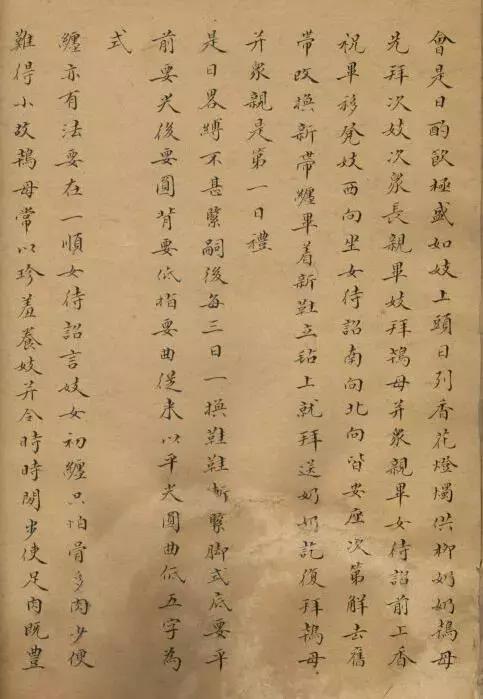 會是日酌飲極盛如妓上頭日列香花燈燭供柳奶奶鴇母
先拜次妓次衆長親畢妓拜鴇母并衆親畢女侍詔前上香
祝畢移凳妓西向坐女侍詔南向北向皆安座次第解去舊
帶改換新帶纏畢着新鞋立毡上就拜送奶奶訖復拜鴇母
并衆親是第一日禮
是日畧縛不甚緊嗣後每三日一換鞋鞋漸緊脚式底要平
前要尖後要圓背要低指要曲從來以平尖圓曲低五字為
式
纏亦有法要在一順女侍詔言妓女初纏只怕骨多肉少便
難得小故鴇母常以珍羞養妓并令時時閒步使足肉既豊